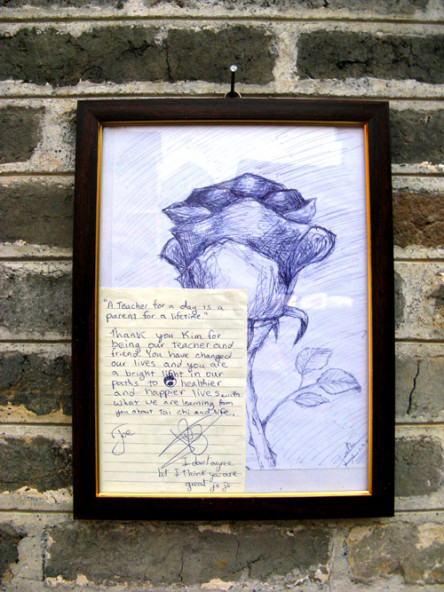 "A Teacher for a day is a
parent for a lifetime"
Thank you Kim for
being our teacher and
friend. You have changed
our lives and you are
a bright light in our
paths to healthier
and happier lives with
what we are learning from
you about Tai chi and life.
Joe
I don't agree
but I think you are
great